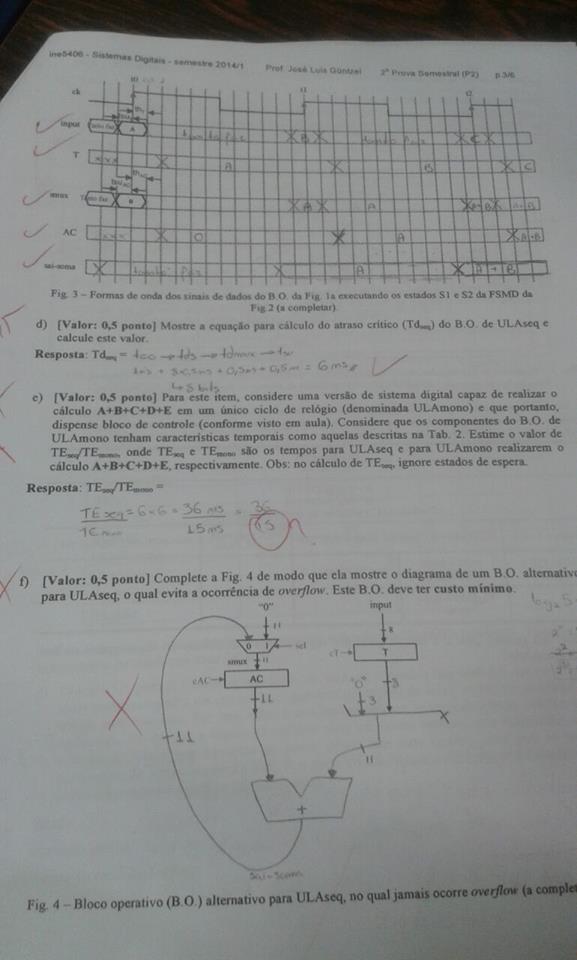 ine5406 - Sistemas Digitais - semestre 2014/1 Prof. José Luís Güntzel 2ª Prova Semestral (P2) p.3/6
t0 t1 t2
ck
input A B C
T A B C
smux B A A A+B A+B
AC 0 A A+B
sai-soma A A + B
Fig. 3 – Formas de onda dos sinais de dados do B.O. da Fig. 1a executando os estados S1 e S2 da FSMD da
Fig.2 (a completar).
d) [Valor: 0,5 ponto] Mostre a equação para cálculo do atraso crítico (Tdseq) do B.O. de ULAseq e
calcule este valor.
Resposta: Tdseq = tco → tds → tdmux → tsu
1ns + 8x0,5ns + 0,5ns + 0,5n = 6 ns
↳ 8 bits
e) [Valor: 0,5 ponto] Para este item, considere uma versão de sistema digital capaz de realizar o
cálculo A+B+C+D+E em um único ciclo de relógio (denominada ULAmono) e que portanto,
dispense bloco de controle (conforme visto em aula). Considere que os componentes do B.O. de
ULAmono tenham características temporais como aquelas descritas na Tab. 2. Estime o valor de
TEseq/TEmono, onde TEseq e TEmono são os tempos para ULAseq e para ULAmono realizarem o
cálculo A+B+C+D+E, respectivamente. Obs: no cálculo de TEseq, ignore estados de espera.
Resposta: TEseq/TEmono =
TEseq = 6×6 = 36 ns = 36
TEmono 15 ns 15
f) [Valor: 0,5 ponto] Complete a Fig. 4 de modo que ela mostre o diagrama de um B.O. alternativo
para ULAseq, o qual evita a ocorrência de overflow. Este B.O. deve ter custo mínimo.
"0" input
11 8
0 1 sel cT T
smux 11
cAC AC "0" 8
11 3
11 11
+
sai-soma
Fig. 4 – Bloco operativo (B.O.) alternativo para ULAseq, no qual jamais ocorre overflow (a complet